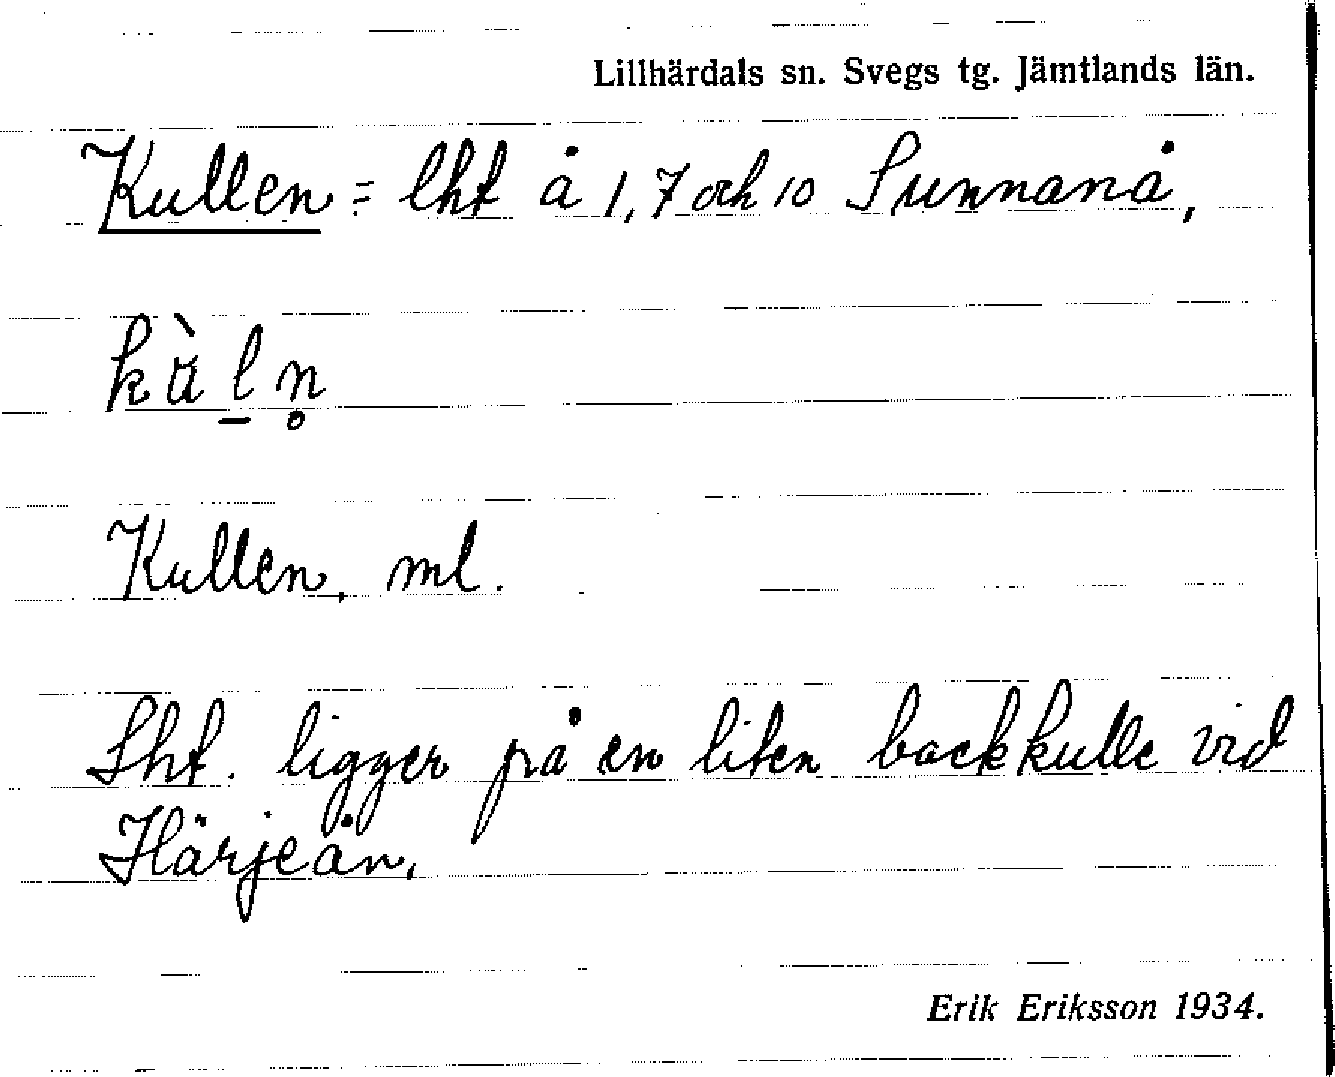 Lillhärdals sn. Svegs tg. Jämtlands län.
Kullen = lht å 1, 7 och 10 Sunnanå,
kàl̠n̥
Kullen, ml.
Lht. ligger på en liten backkulle vid
Härjeån.
Erik Eriksson 1934.